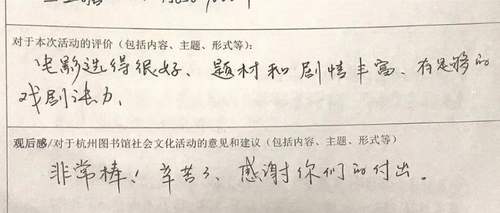 对于本次活动的评价（包括内容、主题、形式等）：
电影选得很好、题材和剧情丰富、有足够的
戏剧张力。
观后感/对于杭州图书馆社会文化活动的意见和建议（包括内容、主题、形式等）
非常棒！辛苦了、感谢你们的付出。